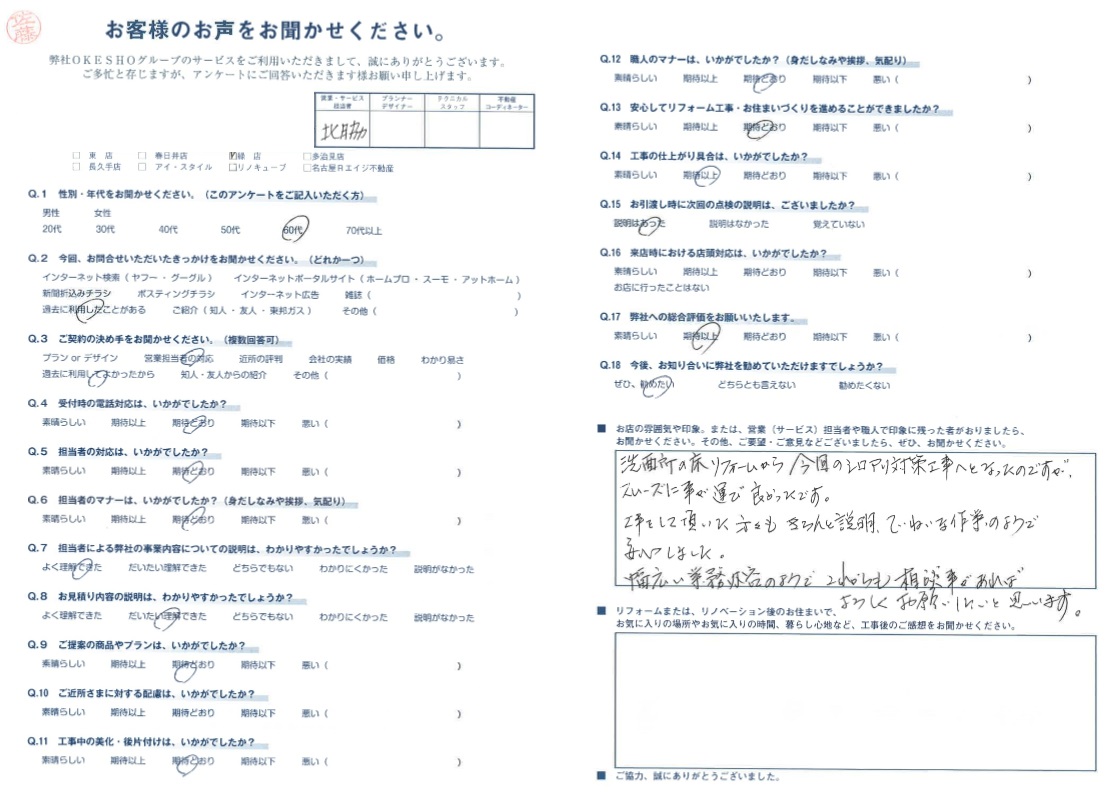 佐藤
お客様のお声をお聞かせください。
弊社ＯＫＥＳＨＯグループのサービスをご利用いただきまして、誠にありがとうございます。
ご多忙と存じますが、アンケートにご回答いただきます様お願い申し上げます。
営業・サービス担当者 プランナーデザイナー テクニカルスタッフ 不動産コーディネーター
北脇
□ 東 店 □ 春日井店 ☑緑 店 □多治見店
□ 長久手店 □ アイ・スタイル □リノキューブ □名古屋Ｒエイジ不動産
Q.1 性別・年代をお聞かせください。（このアンケートをご記入いただく方）
男性 女性
20代 30代 40代 50代 60代 70代以上
Q.2 今回、お問合せいただいたきっかけをお聞かせください。（どれか一つ）
インターネット検索（ ヤフー ・ グーグル ） インターネットポータルサイト（ ホームプロ ・ スーモ ・ アットホーム ）
新聞折込みチラシ ポスティングチラシ インターネット広告 雑誌（ ）
過去に利用したことがある ご紹介（ 知人 ・ 友人 ・ 東邦ガス ） その他（ ）
Q.3 ご契約の決め手をお聞かせください。（複数回答可）
プラン or デザイン 営業担当者の対応 近所の評判 会社の実績 価格 わかり易さ
過去に利用してよかったから 知人・友人からの紹介 その他（ ）
Q.4 受付時の電話対応は、いかがでしたか？
素晴らしい 期待以上 期待どおり 期待以下 悪い（ ）
Q.5 担当者の対応は、いかがでしたか？
素晴らしい 期待以上 期待どおり 期待以下 悪い（ ）
Q.6 担当者のマナーは、いかがでしたか？（身だしなみや挨拶、気配り）
素晴らしい 期待以上 期待どおり 期待以下 悪い（ ）
Q.7 担当者による弊社の事業内容についての説明は、わかりやすかったでしょうか？
よく理解できた だいたい理解できた どちらでもない わかりにくかった 説明がなかった
Q.8 お見積り内容の説明は、わかりやすかったでしょうか？
よく理解できた だいたい理解できた どちらでもない わかりにくかった 説明がなかった
Q.9 ご提案の商品やプランは、いかがでしたか？
素晴らしい 期待以上 期待どおり 期待以下 悪い（ ）
Q.10 ご近所さまに対する配慮は、いかがでしたか？
素晴らしい 期待以上 期待どおり 期待以下 悪い（ ）
Q.11 工事中の美化・後片付けは、いかがでしたか？
素晴らしい 期待以上 期待どおり 期待以下 悪い（ ）
Q.12 職人のマナーは、いかがでしたか？（身だしなみや挨拶、気配り）
素晴らしい 期待以上 期待どおり 期待以下 悪い（ ）
Q.13 安心してリフォーム工事・お住まいづくりを進めることができましたか？
素晴らしい 期待以上 期待どおり 期待以下 悪い（ ）
Q.14 工事の仕上がり具合は、いかがでしたか？
素晴らしい 期待以上 期待どおり 期待以下 悪い（ ）
Q.15 お引渡し時に次回の点検の説明は、ございましたか？
説明はあった 説明はなかった 覚えていない
Q.16 来店時における店頭対応は、いかがでしたか？
素晴らしい 期待以上 期待どおり 期待以下 悪い（ ）
お店に行ったことはない
Q.17 弊社への総合評価をお願いいたします。
素晴らしい 期待以上 期待どおり 期待以下 悪い（ ）
Q.18 今後、お知り合いに弊社を勧めていただけますでしょうか？
ぜひ、勧めたい どちらとも言えない 勧めたくない
■ お店の雰囲気や印象。または、営業（サービス）担当者や職人で印象に残った者がおりましたら、
お聞かせください。その他、ご要望・ご意見などございましたら、ぜひ、お聞かせください。
洗面所の床リフォームから今回のシロアリ対策工事へとなったのですが、
スムーズに事が運び良かったです。
工事をして頂いた方々もきちんと説明、ていねいな作業のようで
安心しました。
幅広い業務内容のようでこれからも相談事があれば
よろしくお願いしたいと思います。
■ リフォームまたは、リノベーション後のお住まいで、
お気に入りの場所やお気に入りの時間、暮らし心地など、工事後のご感想をお聞かせください。
■ ご協力、誠にありがとうございました。